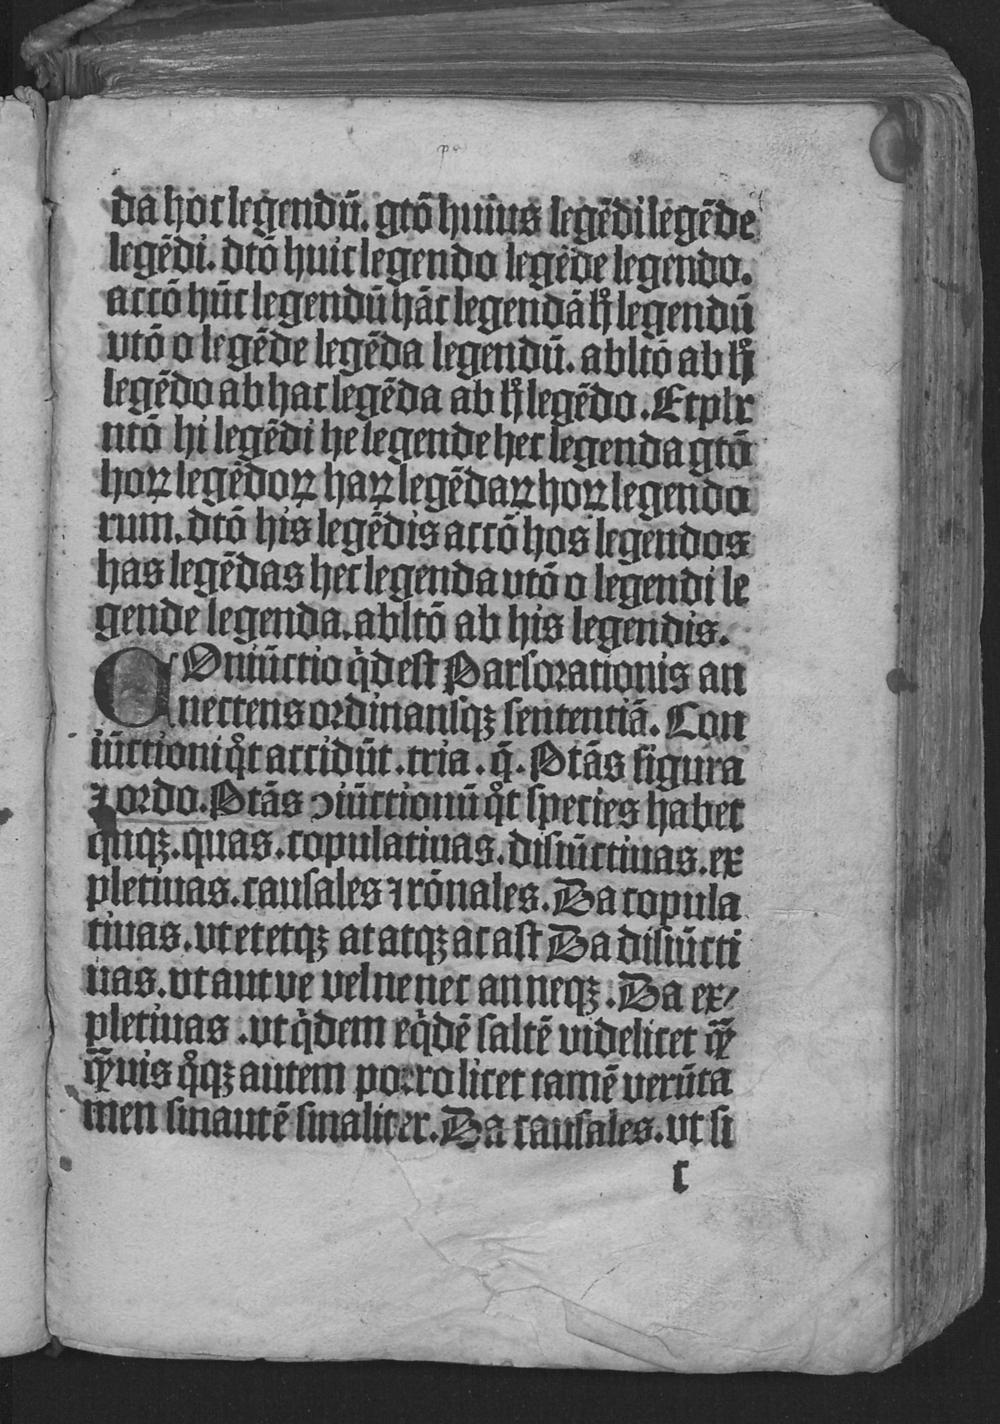 da hoc legendū. gtō huius legēdi legēde
legēdi. dtō huic legendo legēde legendo.
accō hūc legendū hāc legendā hͦ legendū
vtō o legēde legēda legendū. abltō ab hͦ
legēdo ab hac legēda ab hͦ legēdo. Et plr
ntō hi legēdi he legende hec legenda gtō
hoꝝ legēdoꝝ haꝝ legēdaꝝ hoꝝ legendo
rum. dtō his legēdis accō hos legendos
has legēdas hec legenda vtō o legendi le
gende legenda. abltō ab his legendis.
COniūctio qͥd est Pars orationis an
nectens ordinansqꝫ sententiā. Con
iūctioni qͦt accidūt. tria. q̄. Ptās figura
⁊ ordo. Ptās ↄiūctionū qͦt species habet
quqꝫ. quas. copulatiuas. disiūctiuas. ex
pletiuas. causales ⁊ rōnales. Da copula
tiuas. vt et etqꝫ at atqꝫ ac ast Da disiūcti
uas. vt aut ve vel ne nec an neqꝫ. Da ex/
pletiuas. vt qͥdem eqͥdē saltē videlicet qꝫ̄
qꝫ̄uis qͦqꝫ autem porro licet tamē verūta
men sinautē sinaliter. Da causales. vt si
c